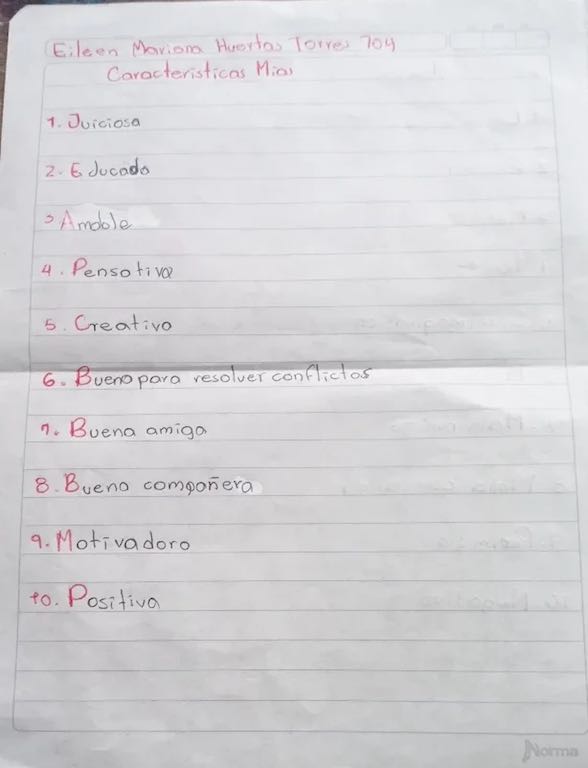 Eileen Mariana Huertas Torres 704
Caracteristicas Mias
1. Juiciosa
2. Educada
3 Amable
4. Pensativa
5. Creativa
6. Buena para resolver conflictos
7. Buena amiga
8. Buena compañera
9. Motivadora
10. Positiva
Norma